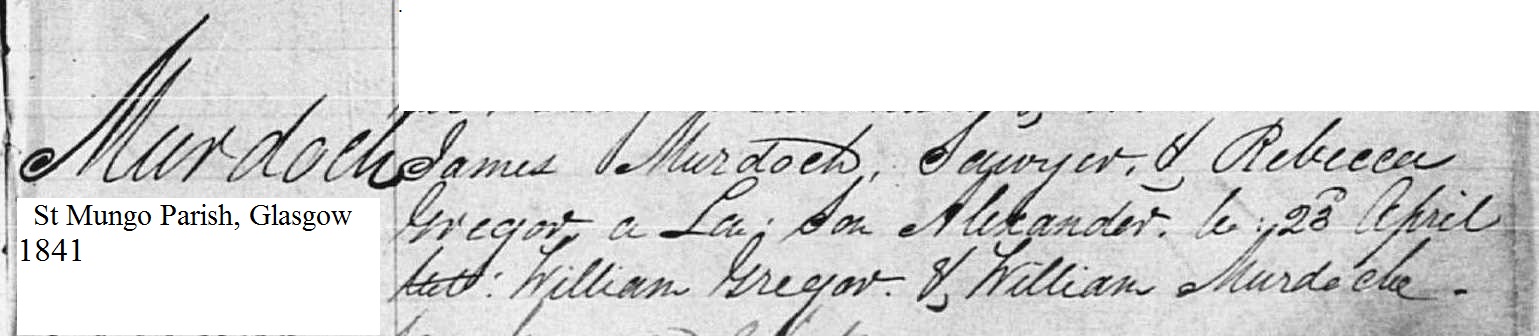 Murdoch
St Mungo Parish, Glasgow
1841
James Murdoch, Sawyer, & Rebecca
Gregor, a La: Son Alexander. b: 23d April
Wit: William Gregor. & William Murdoch.